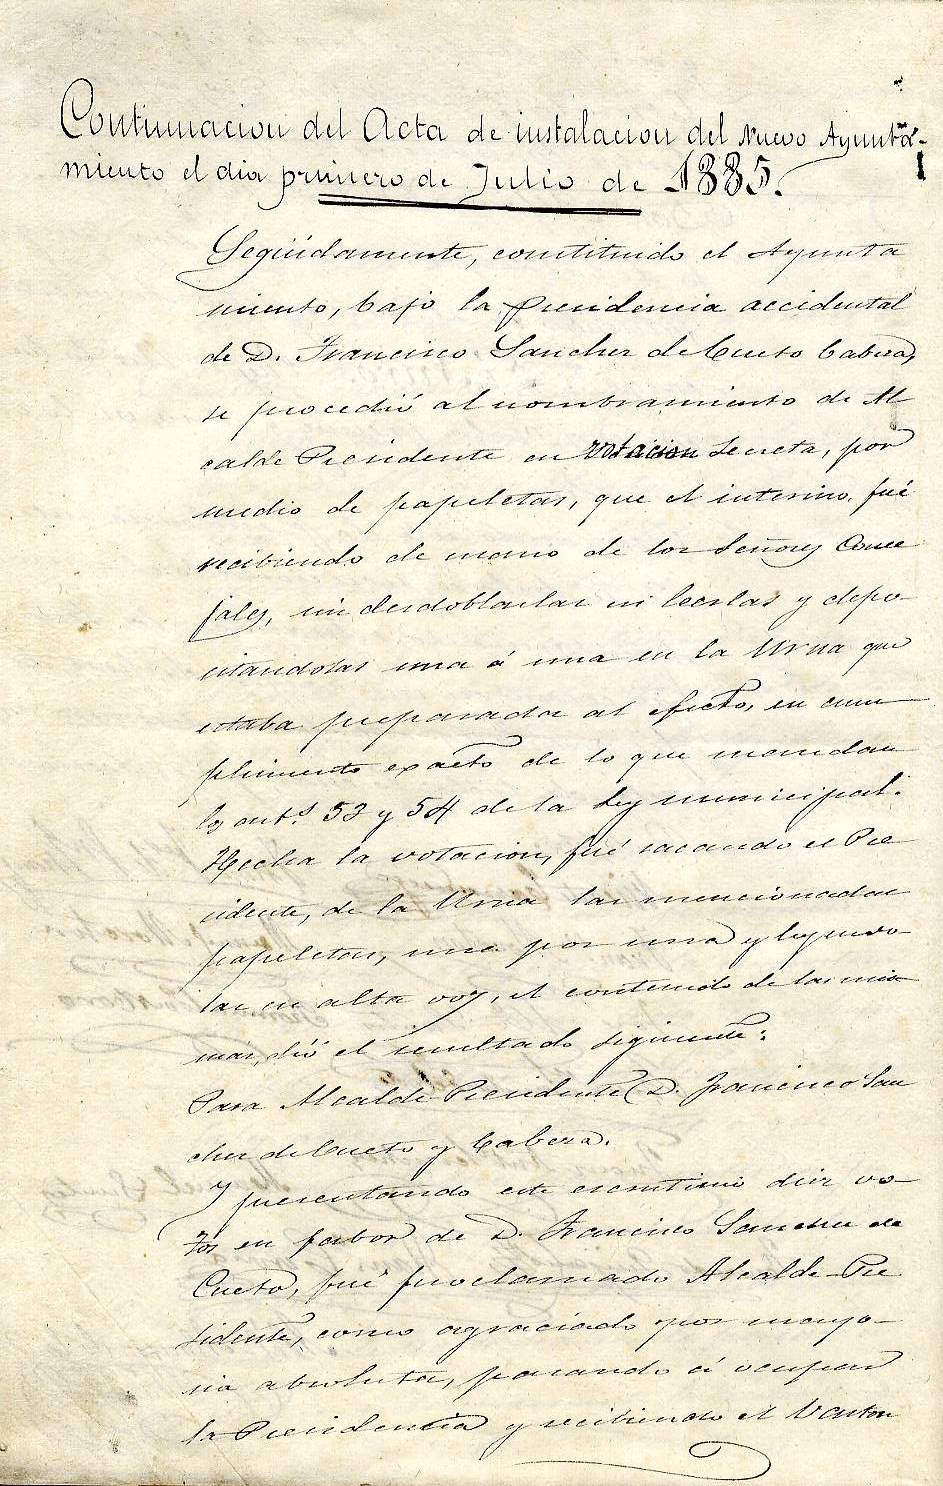 Continuacion del Acta de instalacion del Nuevo Ayunta-
miento el dia primero de Julio de 1885.
Seguidamente, constituido el Ayunta
miento, bajo la Presidencia accidental
de D. Francisco Sanchez de Cueto Cabeza,
se procedió al nombramiento de Al
calde Presidente en votacion Secreta, por
medio de papeletas, que el interino, fué
recibiendo de mano de los Señores Conce
jales, sin desdoblarlas ni leerlas y depo-
sitandolas una á una en la Urna que
estaba preparada al efecto, en cum
plimiento exacto de lo que mandan
los arts. 53 y 54 de la Ley municipal.
Hecha la votacion, fué sacando el Pre
sidente, de la Urna las mencionadas
papeletas, una por una y leyendo-
las en alta voz, el contenido de las mis
mas, dió el resultado siguiente:
Para Alcalde Presidente D. Francisco San
chez de Cueto y Cabeza.
Y presentando este escrutinio diez vo-
tos en fabor de D. Francisco Sanchez de
Cueto, fué proclamado Alcalde-Pre
sidente, como agraciado por mayo-
ria absoluta, pasando á ocupar
la Presidencia y recibiendo el baston